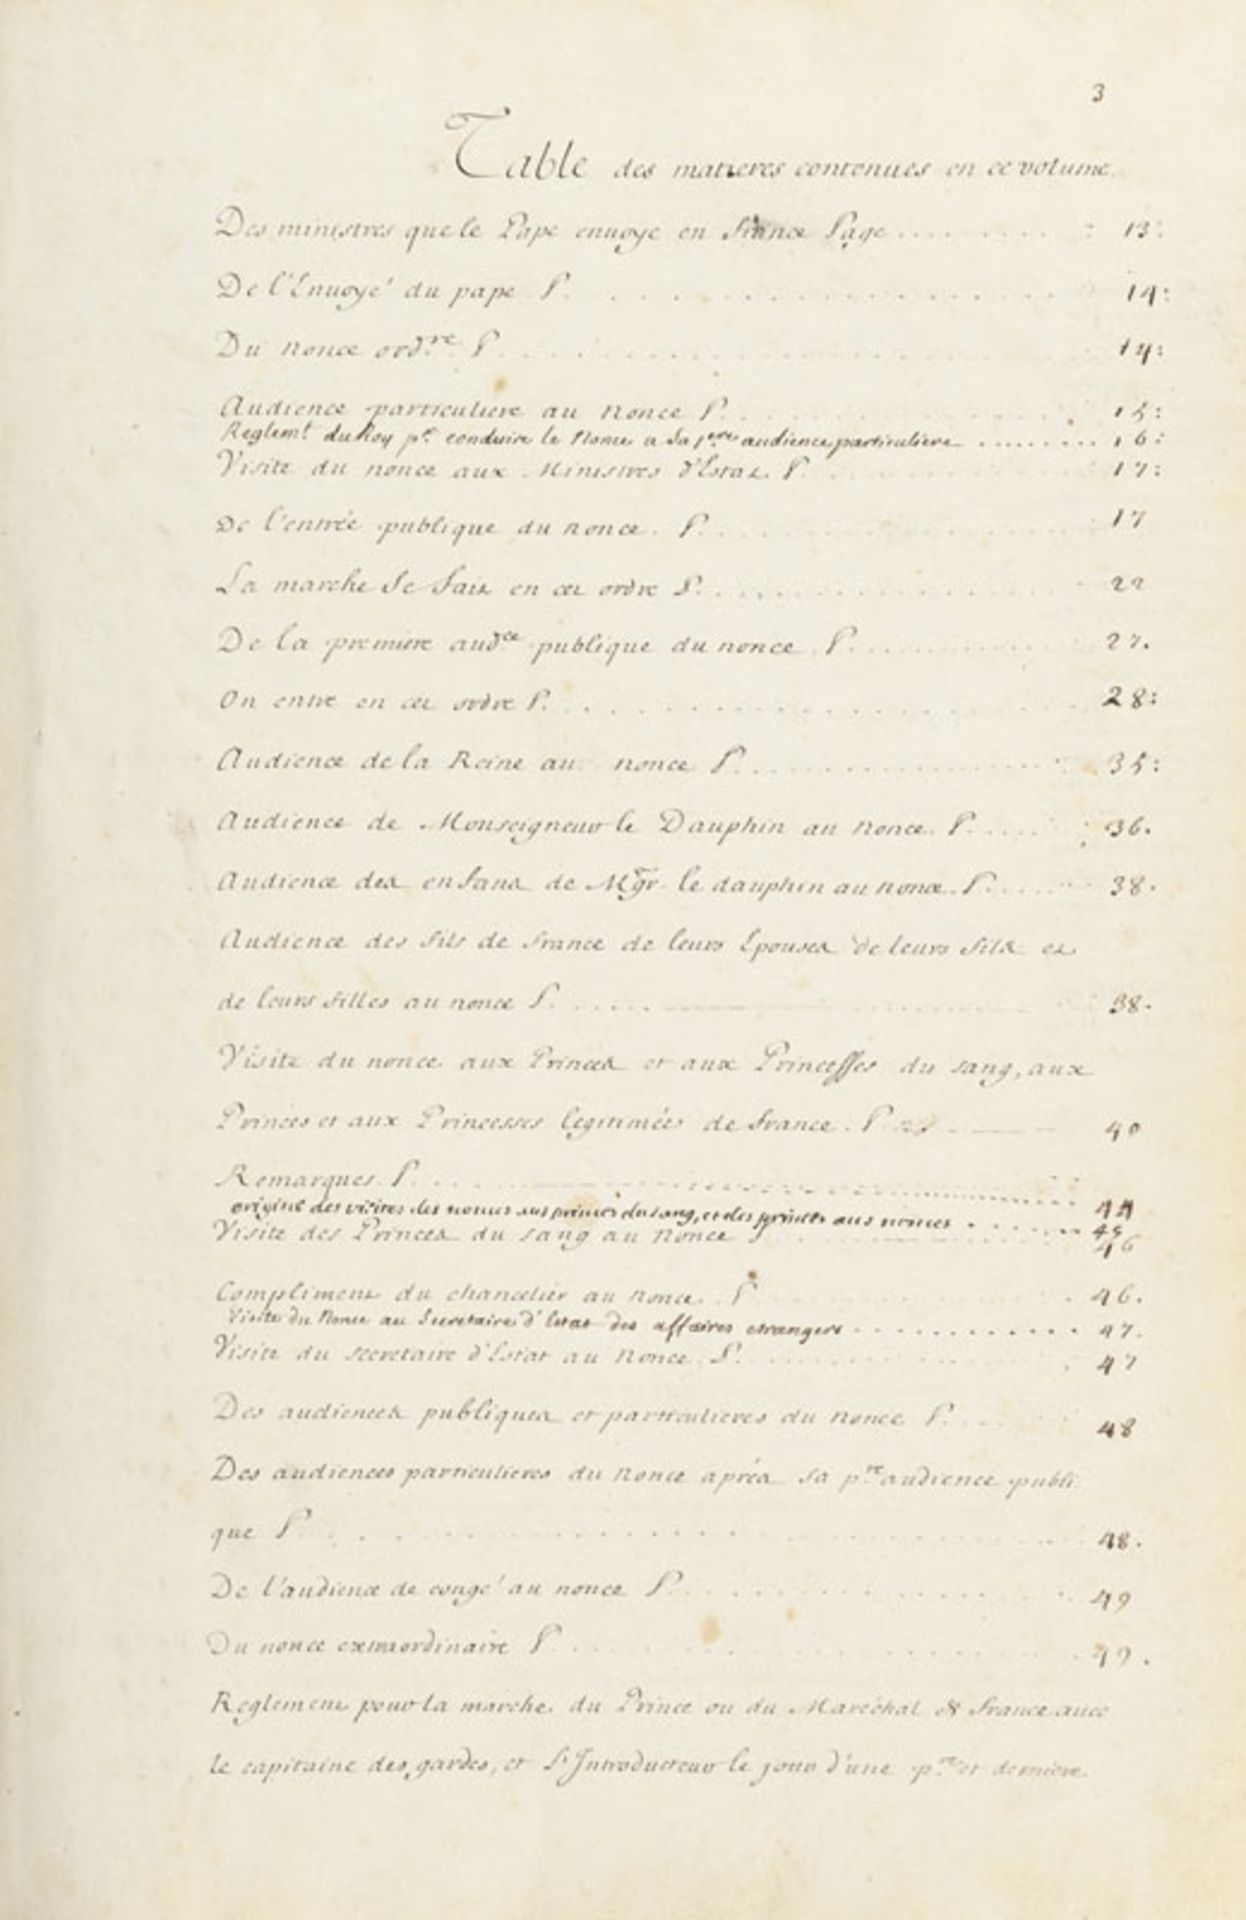 3
Table des matieres contenues en ce volume.
Des ministres que le Pape envoye en France Page .......... 13:
De l'Envoyé du pape P. .......... 14:
Du nonce ord.re P .......... 14:
Audience particuliere au nonce P. .......... 15:
Reglemt. du Roy pr. conduire le Nonce a sa pere audience particuliere .......... 16:
Visite du nonce aux Ministres d'Estat P. .......... 17:
De l'entrée publique du nonce. P. .......... 17
La marche se fait en cet ordre P. .......... 22
De la premiere audce publique du nonce P. .......... 27.
On entre en cet ordre P. .......... 28:
Audience de la Reine au nonce P. .......... 35:
Audience de Monseigneur le Dauphin au nonce. P. .......... 36.
Audience des enfans de Mgr. le dauphin au nonce. P. .......... 38.
Audience des fils de france de leurs Epouses de leurs fils et
de leurs filles au nonce P. .......... 38.
Visite du nonce aux Princes et aux Princesses du sang, aux
Princes et aux Princesses legitimées de france. P .......... 40
Remarques. P. .......... 44
origine des visites des nonces aux princes du sang, et des princes aux nonces .......... 45
Visite des Princes du sang au Nonce .......... 46
Compliment du chancelier au nonce. P .......... 46.
Visite du Nonce au Secretaire d'Estat des affaires etrangers .......... 47.
Visite du secretaire d'Estat au Nonce P. .......... 47
Des audiences publiques et particulieres du nonce P. .......... 48
Des audiences particulieres du nonce aprés sa p.re audience publi
que P. .......... 48.
De l'audience de congé au nonce P. .......... 49
Du nonce extraordinaire P .......... 49.
Reglement pour la marche du Prince ou du Maréchal de france avec
le capitaine des gardes, et l'Introducteur le jour d'une p.re et derniere